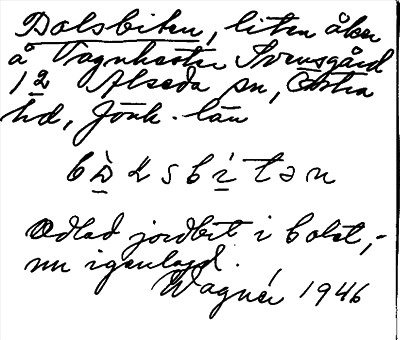 Bolsbiten, liten åker
å Vagnhester Svensgård
1 2 Alseda sn, Östra
hd, Jönk. län
bò̱lsbi̱tən
Odlad jordbit i bolet,-
nu igenlagd.
Wagnér 1946